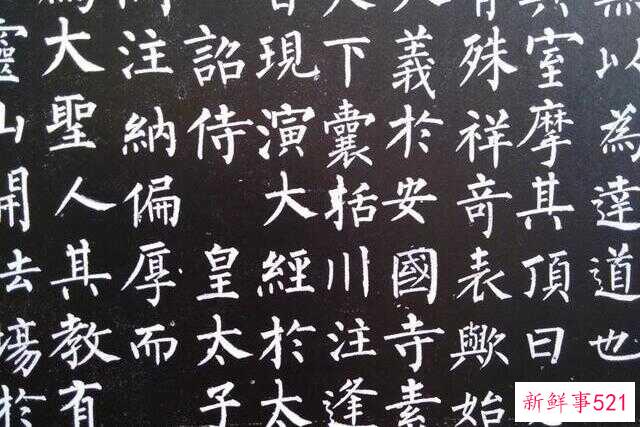 無以為達道也
其室摩其頂曰
有殊祥奇表歟始
大義於安國寺素
天下囊括川注逢
皆現演大經於太
詔侍 皇太子
問注納偏厚而
為大聖人其教有
靈山開法場於
新鲜事521